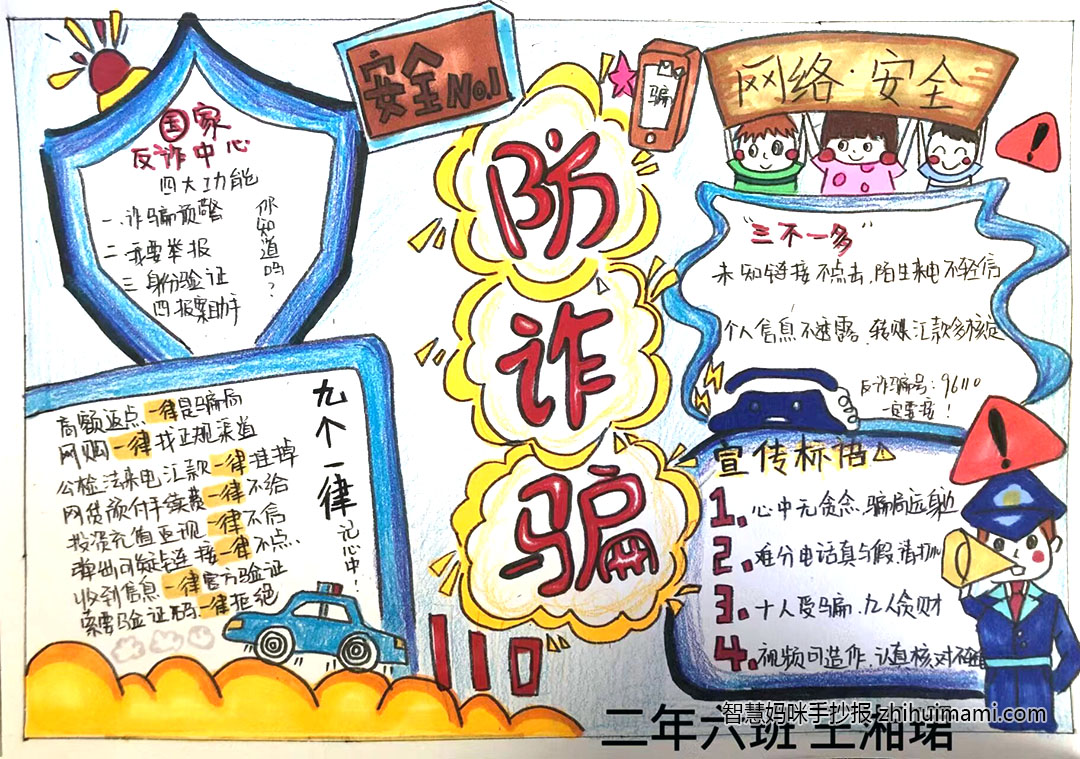 安全No.1
骗
网络·安全
防诈骗
国家
反诈中心
四大功能
一.诈骗预警
二 我要举报
三 身份验证
四 报案助手
你知道吗?
"三不一多"
未知链接不点击,陌生来电不轻信
个人信息不透露,转账汇款多核定
反诈骗号:96110
一定要接!
九个一律记心中!
高额返点,一律是骗局
网购一律找正规渠道
公检法来电汇款一律挂掉
网贷预付手续费一律不给
投资充值返现一律不信
弹出可疑链接一律不点、
收到信息一律官方验证
索要验证码一律拒绝
110
宣传标语
1.心中无贪念、骗局远身边
2.难分电话真与假,请打110
3.十人受骗.九人贪财
4.视频可造作,认真核对不
智慧妈咪手抄报 zhihuimami.com
二年六班 王湘珺